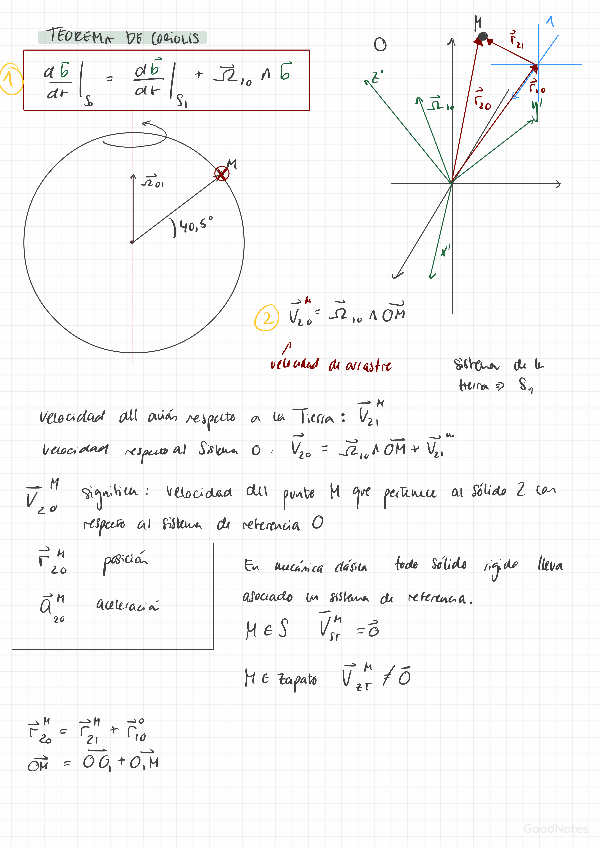 TEOREMA DE CORIOLIS
1 d b⃗/dt |S₀ = d b⃗/dt |S₁ + Ω⃗₁₀ ∧ b⃗
M
Ω⃗₀₁
40,5°
O
M
1
r⃗₂₁
z'
Ω⃗₁₀
r⃗₂₀
r⃗₁₀
y'
x'
2 V⃗₂₀ᴹ = Ω⃗₁₀ ∧ OM⃗
velocidad de arrastre
sistema de la
tierra ⇒ S₁
velocidad del avión respecto a la Tierra: V⃗₂₁ᴹ
velocidad respecto al Sistema 0: V⃗₂₀ = Ω⃗₁₀ ∧ OM⃗ + V⃗₂₁ᴹ
V⃗₂₀ᴹ significa: velocidad del punto M que pertenece al sólido 2 con
respecto al sistema de referencia 0
r⃗₂₀ᴹ posición
a⃗₂₀ᴹ aceleración
En mecánica clásica todo sólido rígido lleva
asociado un sistema de referencia.
M ∈ S V⃗ₛₜᴹ = 0⃗
M ∈ Zapato V⃗zTᴹ ≠ 0⃗
r⃗₂₀ᴹ = r⃗₂₁ᴹ + r⃗₁₀⁰
OM⃗ = OO₁⃗ + O₁M⃗
GoodNotes